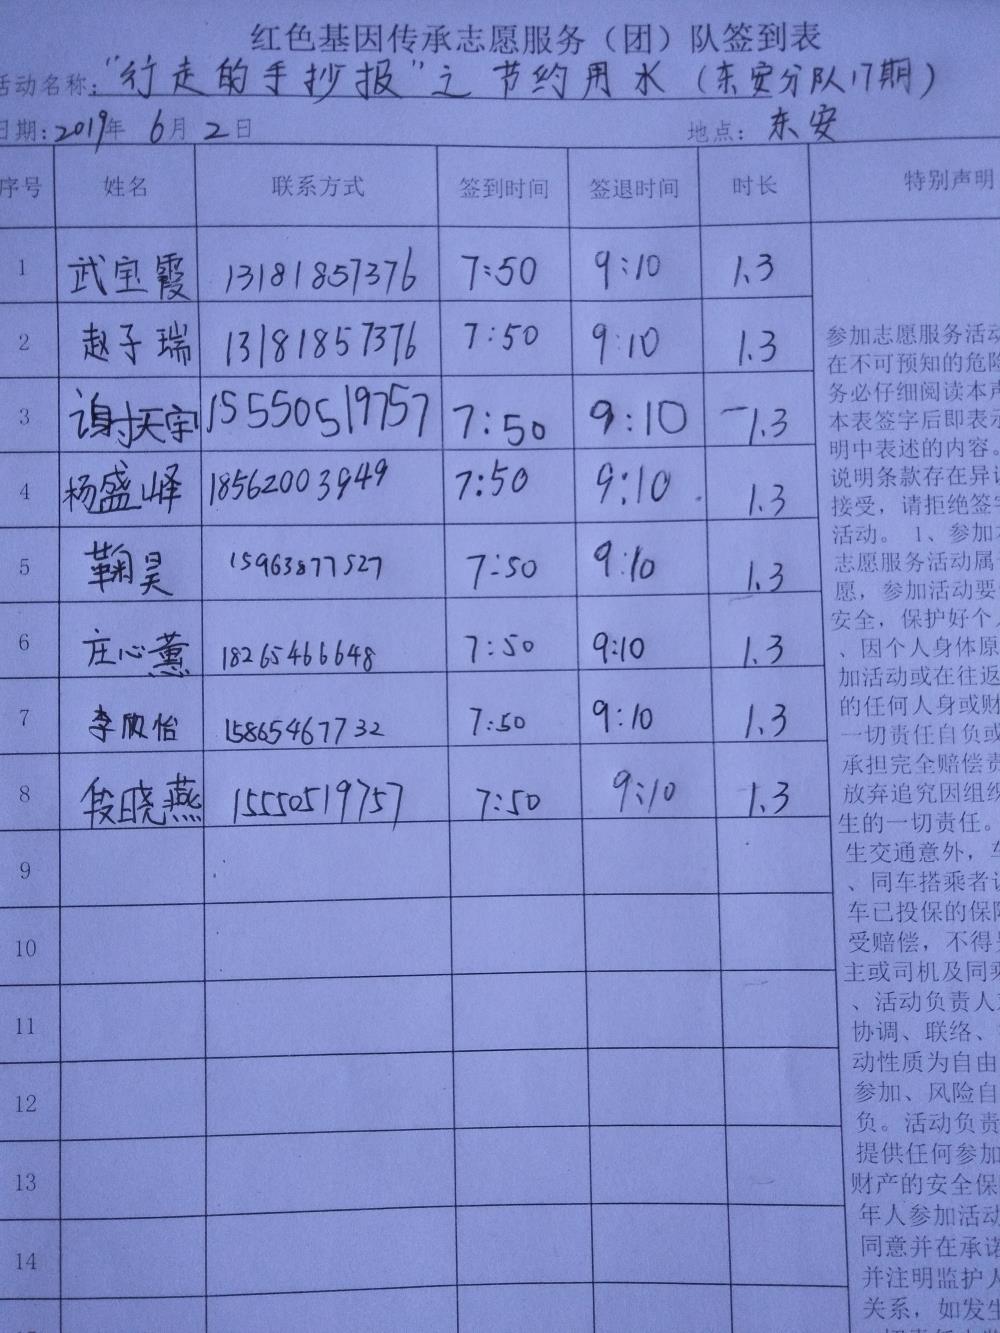 红色基因传承志愿服务（团）队签到表
活动名称："行走的手抄报"之 节约用水（东安分队17期）
日期：2019年 6月2日 地点：东安
序号 姓名 联系方式 签到时间 签退时间 时长 特别声明
1 武宝霞 13181857376 7:50 9:10 1.3
2 赵子瑞 13181857376 7:50 9:10 1.3
3 谢天宇 15550519757 7:50 9:10 1.3
4 杨盛峄 18562003949 7:50 9:10 1.3
5 鞠昊 15963877527 7:50 9:10 1.3
6 庄心薰 18265466648 7:50 9:10 1.3
7 李欣怡 15865467732 7:50 9:10 1.3
8 段晓燕 15550519757 7:50 9:10 1.3
9
10
11
12
13
14
参加志愿服务活动
在不可预知的危险
务必仔细阅读本声
本表签字后即表示
明中表述的内容。
说明条款存在异议
接受，请拒绝签字
活动。 1、参加本
志愿服务活动属
愿，参加活动要
安全，保护好个人
、因个人身体原
加活动或在往返
的任何人身或财
一切责任自负或
承担完全赔偿责
放弃追究因组织
生的一切责任。
生交通意外，车
、同车搭乘者
车已投保的保险
受赔偿，不得
主或司机及同乘
、活动负责人
协调、联络、
动性质为自由
参加、风险自
负。活动负责
提供任何参加
财产的安全保
年人参加活动
同意并在承诺
并注明监护人
关系，如发生